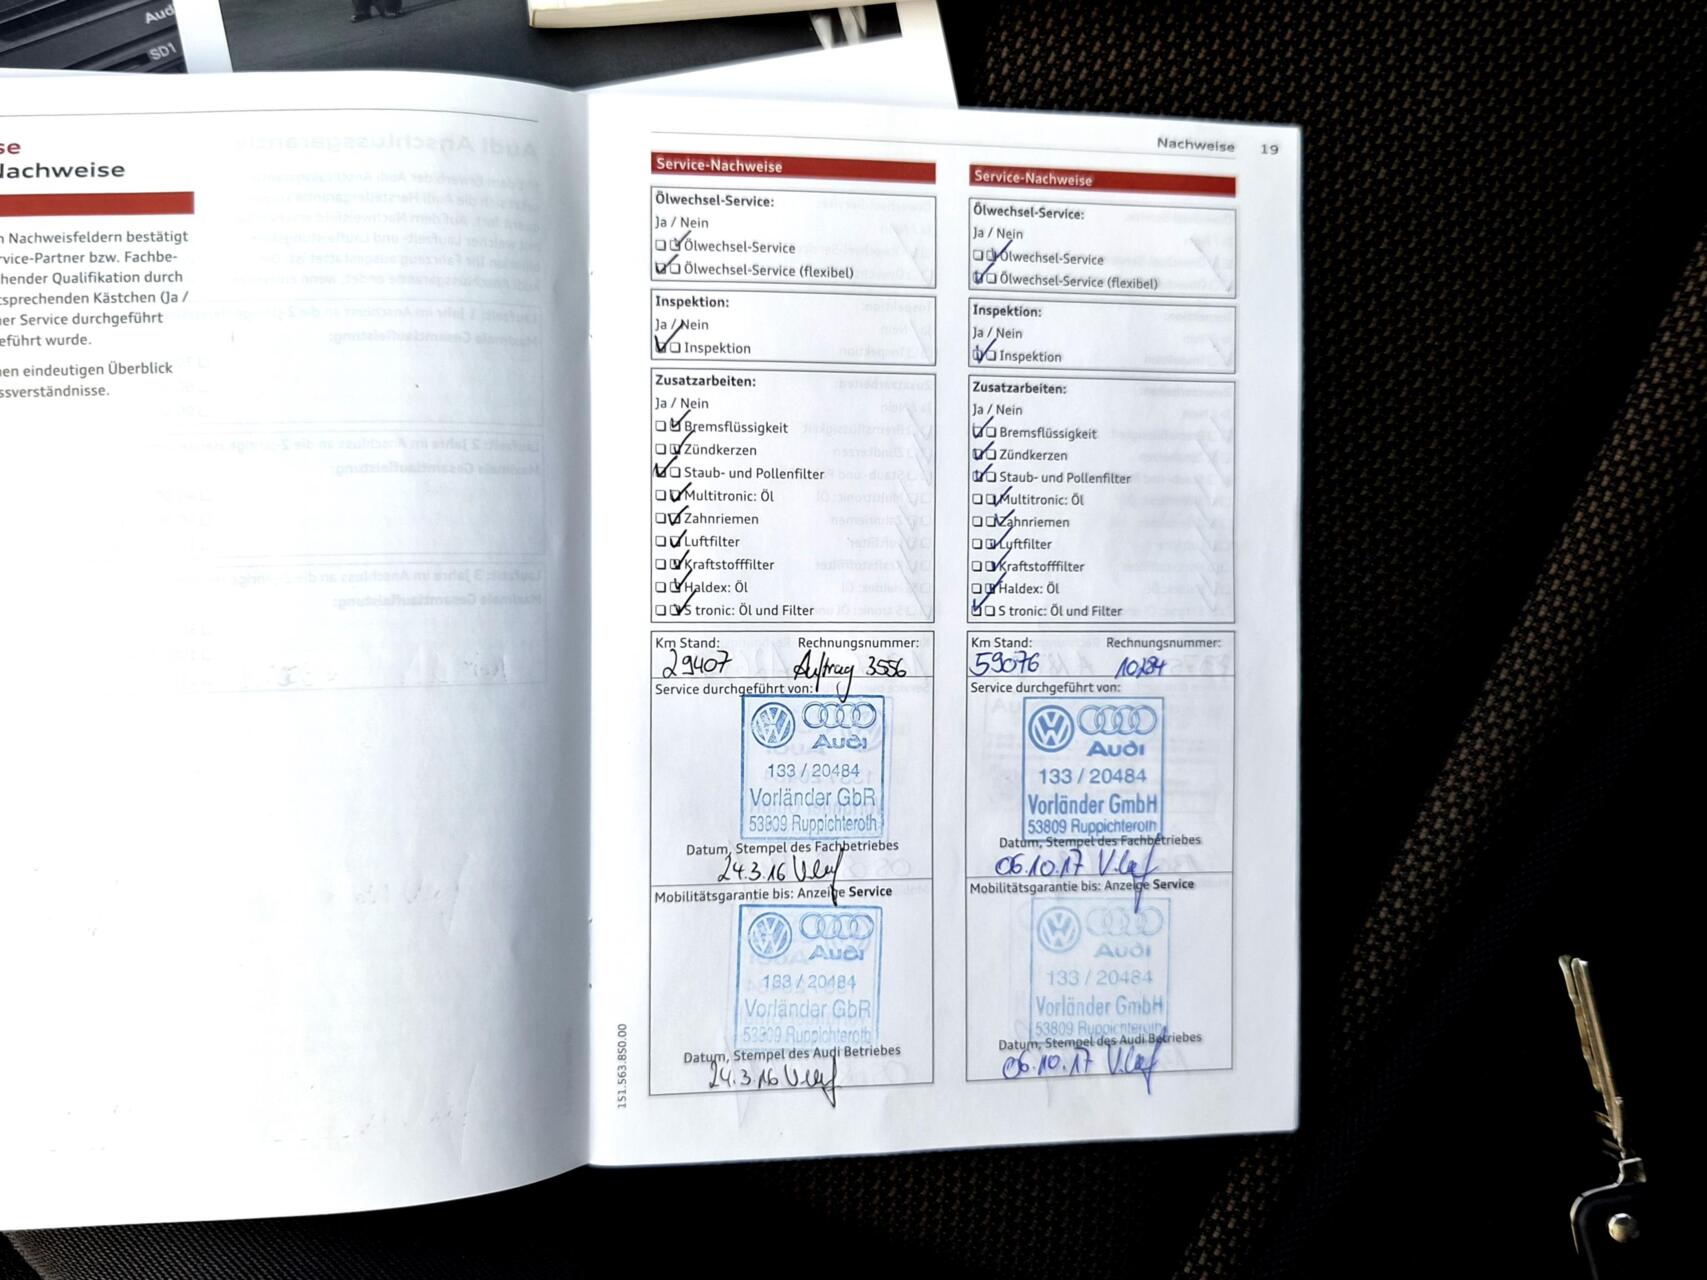 Aud
SD1
se
Nachweise
n Nachweisfeldern bestätigt
rvice-Partner bzw. Fachbe-
hender Qualifikation durch
tsprechenden Kästchen (Ja /
ner Service durchgeführt
eführt wurde.
nen eindeutigen Überblick
ssverständnisse.
Nachweise 19
Service-Nachweise
Ölwechsel-Service:
Ja / Nein
Ölwechsel-Service
Ölwechsel-Service (flexibel)
Inspektion:
Ja / Nein
Inspektion
Zusatzarbeiten:
Ja / Nein
Bremsflüssigkeit
Zündkerzen
Staub- und Pollenfilter
Multitronic: Öl
Zahnriemen
Luftfilter
Kraftstofffilter
Haldex: Öl
S tronic: Öl und Filter
Km Stand: Rechnungsnummer:
29407 Auftrag 3556
Service durchgeführt von:
Audi
133 / 20484
Vorländer GbR
53809 Ruppichteroth
Datum, Stempel des Fachbetriebes
24.3.16
Mobilitätsgarantie bis: Anzeige Service
Audi
133 / 20484
Vorländer GbR
53809 Ruppichteroth
Datum, Stempel des Audi Betriebes
24.3.16
151.563.850.00
Service-Nachweise
Ölwechsel-Service:
Ja / Nein
Ölwechsel-Service
Ölwechsel-Service (flexibel)
Inspektion:
Ja / Nein
Inspektion
Zusatzarbeiten:
Ja / Nein
Bremsflüssigkeit
Zündkerzen
Staub- und Pollenfilter
Multitronic: Öl
Zahnriemen
Luftfilter
Kraftstofffilter
Haldex: Öl
S tronic: Öl und Filter
Km Stand: Rechnungsnummer:
59076 10284
Service durchgeführt von:
Audi
133 / 20484
Vorländer GmbH
53809 Ruppichteroth
Datum, Stempel des Fachbetriebes
06.10.17
Mobilitätsgarantie bis: Anzeige Service
Audi
133 / 20484
Vorländer GmbH
53809 Ruppichteroth
Datum, Stempel des Audi Betriebes
06.10.17